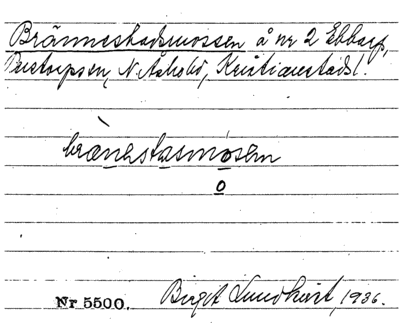 Bränneskadsmossen å nr 2 Ebbarp,
Perstorps sn, N. Åsbo hd, Kristianstads l.
brænestasmosen
o
Nr 5500. Birgit Lundkvist, 1936.